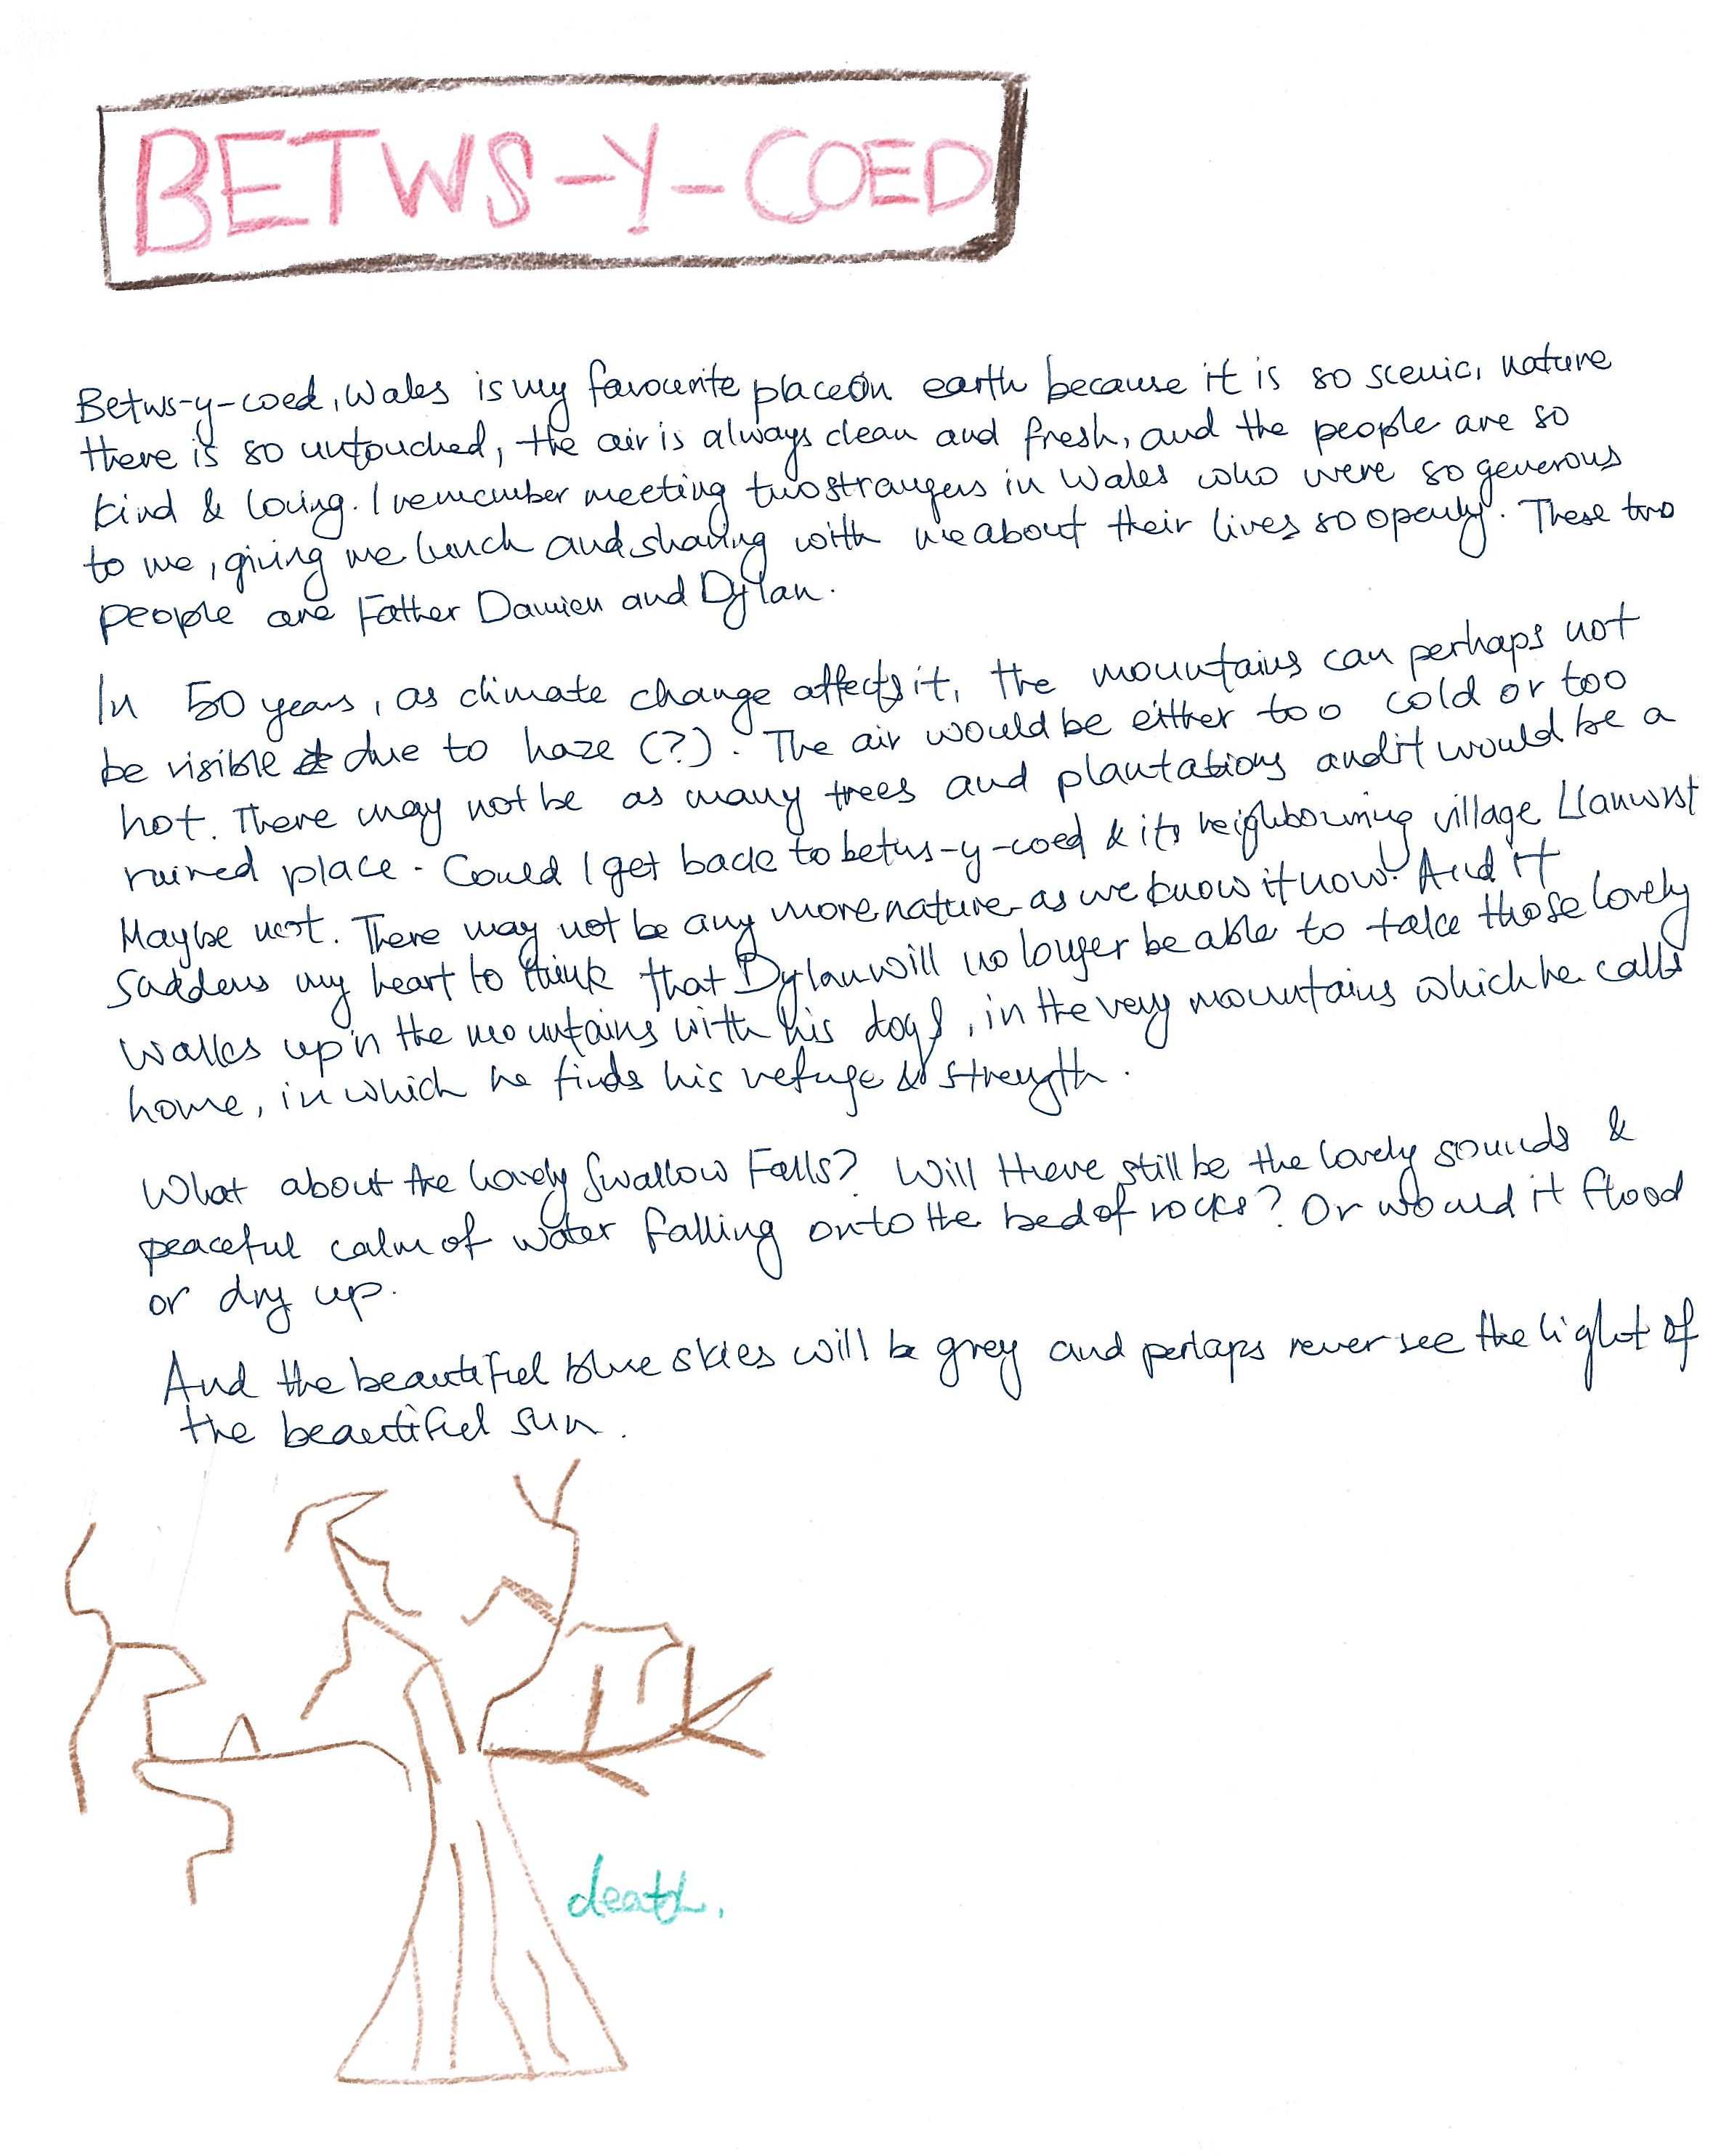 BETWS-Y-COED
Betws-y-coed, Wales is my favourite place on earth because it is so scenic, nature
there is so untouched, the air is always clean and fresh, and the people are so
kind & loving. I remember meeting two strangers in Wales who were so generous
to me, giving me lunch and sharing with me about their lives so openly. These two
people are Father Damien and Dylan.
In 50 years, as climate change affects it, the mountains can perhaps not
be visible due to haze (?). The air would be either too cold or too
hot. There may not be as many trees and plantations and it would be a
ruined place. Could I get back to betws-y-coed & its neighbouring village Llanwrst
Maybe not. There may not be any more nature as we know it now! And it
saddens my heart to think that Dylan will no longer be able to take those lovely
walks up'n the mountains with his dogs, in the very mountains which he calls
home, in which he finds his refuge & strength.
What about the lovely Swallow Falls? Will there still be the lovely sounds &
peaceful calm of water falling onto the bed of rocks? Or would it flood
or dry up.
And the beautiful blue skies will be grey and perhaps never see the light of
the beautiful sun.
death.